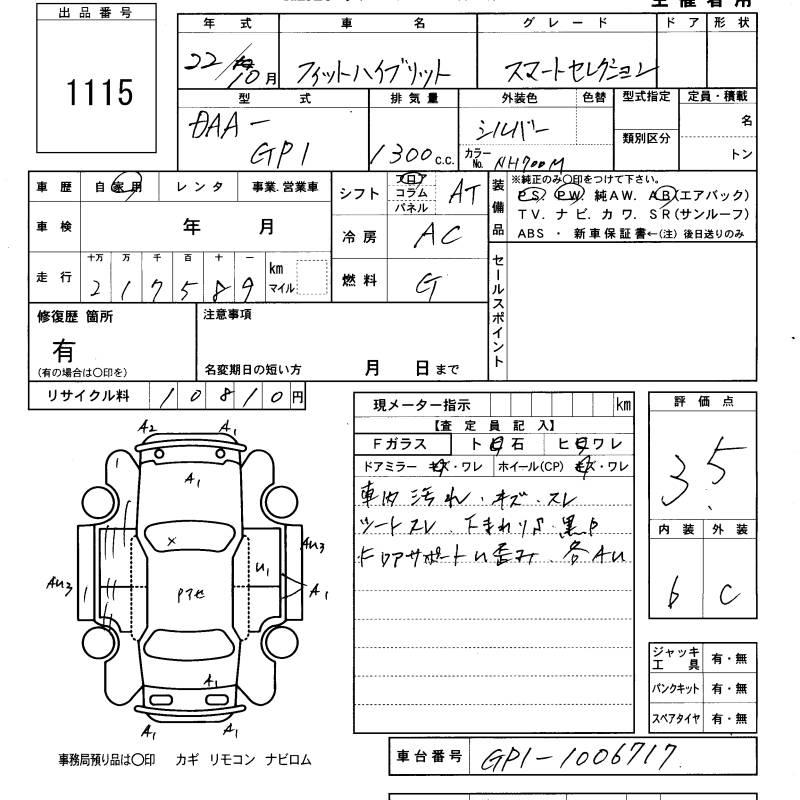 出品番号
1115
年式 車名 グレード ドア 形状
22/10月 フィットハイブリット スマートセレクション
型式 排気量 外装色 色替 型式指定 定員・積載
DAA-GP1 1300 C.C. シルバー 名
カラーNo. NH700M 類別区分 トン
車歴 自家用 レンタ 事業.営業車
シフト フロア コラム パネル AT
装備品
※純正のみ○印をつけて下さい。
PS. PW. 純AW. AB(エアバック)
TV. ナビ. カワ. SR(サンルーフ)
ABS ・ 新車保証書←(注) 後日送りのみ
車検 年 月
冷房 AC
走行 十万 万 千 百 十 一
217589 km マイル
燃料 G
セールスポイント
修復歴 箇所
有
(有の場合は○印を)
注意事項
名変期日の短い方 月 日まで
リサイクル料 10810円
現メーター指示 km
【査定員記入】
Fガラス ト石 ヒワレ
ドアミラー キズ・ワレ ホイール(CP) キズ・ワレ
車内汚れ・キズ・スレ
シートスレ
ドアサポートU歪み 各AU
評価点
3.5
内装 外装
b C
ジャッキ工具 有・無
パンクキット 有・無
スペアタイヤ 有・無
A2 A1
A1
1
×
U1
AU3
AU3
A1
Pアセ
A1
A1 A1
事務局預り品は○印 カギ リモコン ナビロム
車台番号 GP1-1006717